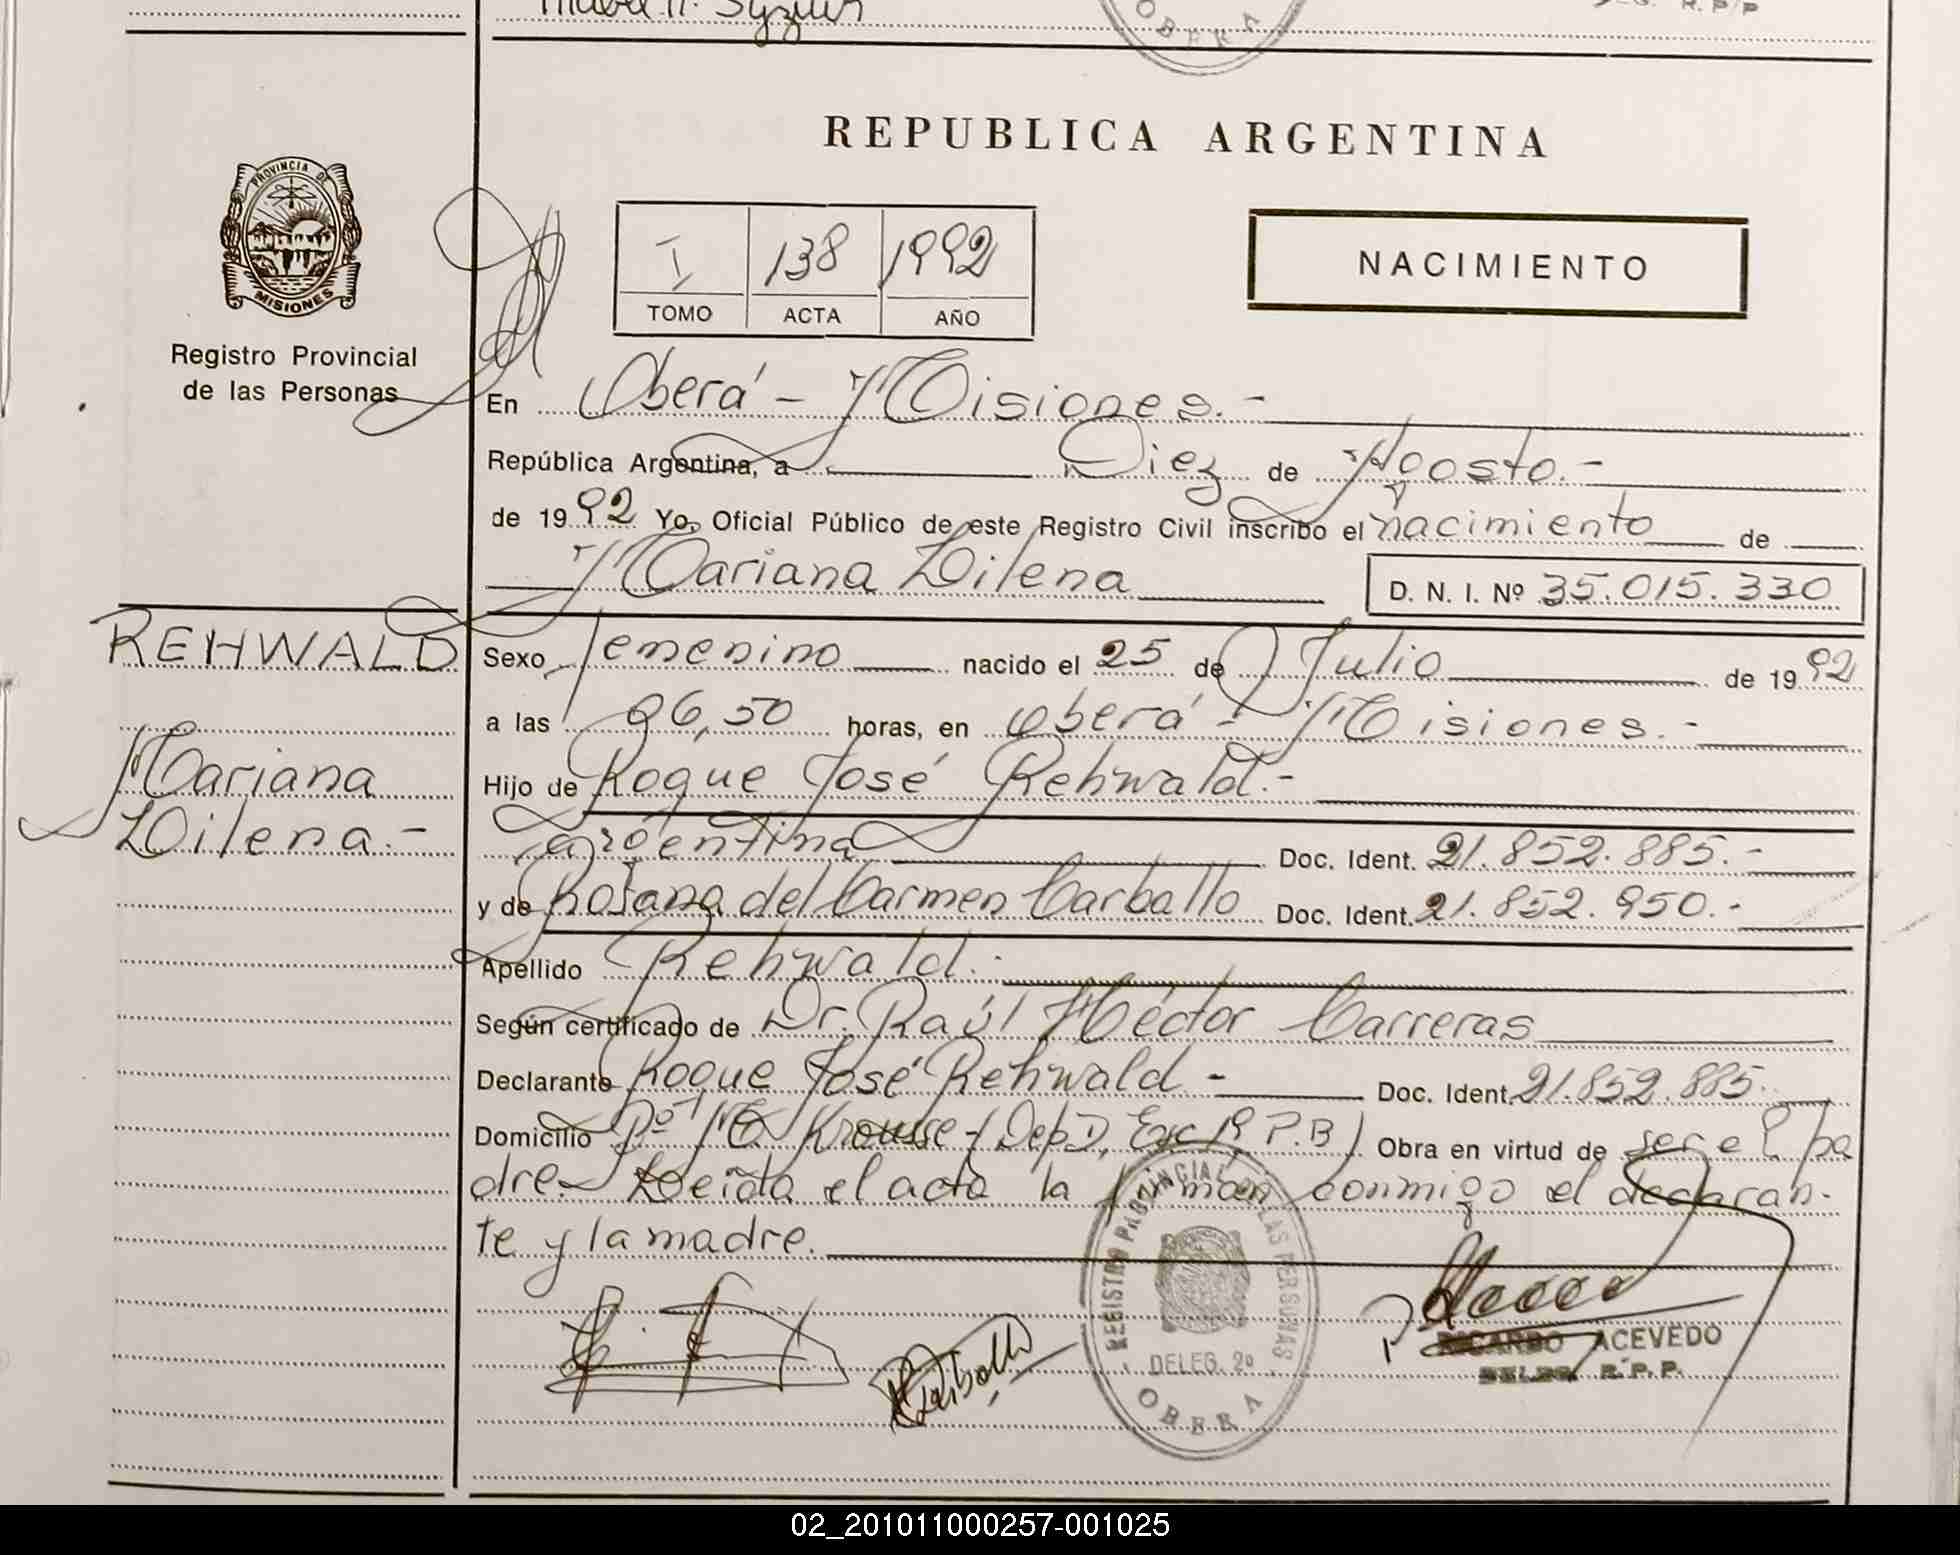 OBERA
R.P.P
REPUBLICA ARGENTINA
PROVINCIA DE
MISIONES
Registro Provincial
de las Personas
I 138 1992
TOMO ACTA AÑO
NACIMIENTO
En Oberá - Misiones.-
República Argentina, a Diez de Agosto.-
de 1992 Yo, Oficial Público de este Registro Civil inscribo el nacimiento de
Mariana Dilena D. N. I. Nº 35.015.330
REHWALD
Mariana
Dilena.-
Sexo femenino nacido el 25 de Julio de 1992
a las 06,50 horas, en Oberá - Misiones.-
Hijo de Roque José Rehwald.-
argentina Doc. Ident. 21.852.885.-
y de Rosana del Carmen Carballo Doc. Ident. 21.852.950.-
Apellido Rehwald.-
Según certificado de Dr. Raúl Héctor Carreras
Declarante Roque José Rehwald - Doc. Ident. 21.852.885.
Domicilio Krausse Obra en virtud de ser el pa
dre. Leída el acta la firman conmigo el declaran-
te y la madre.
REGISTRO PROVINCIAL DE LAS PERSONAS
DELEG. 2º
OBERA
RICARDO ACEVEDO
R.P.P.
02_201011000257-001025